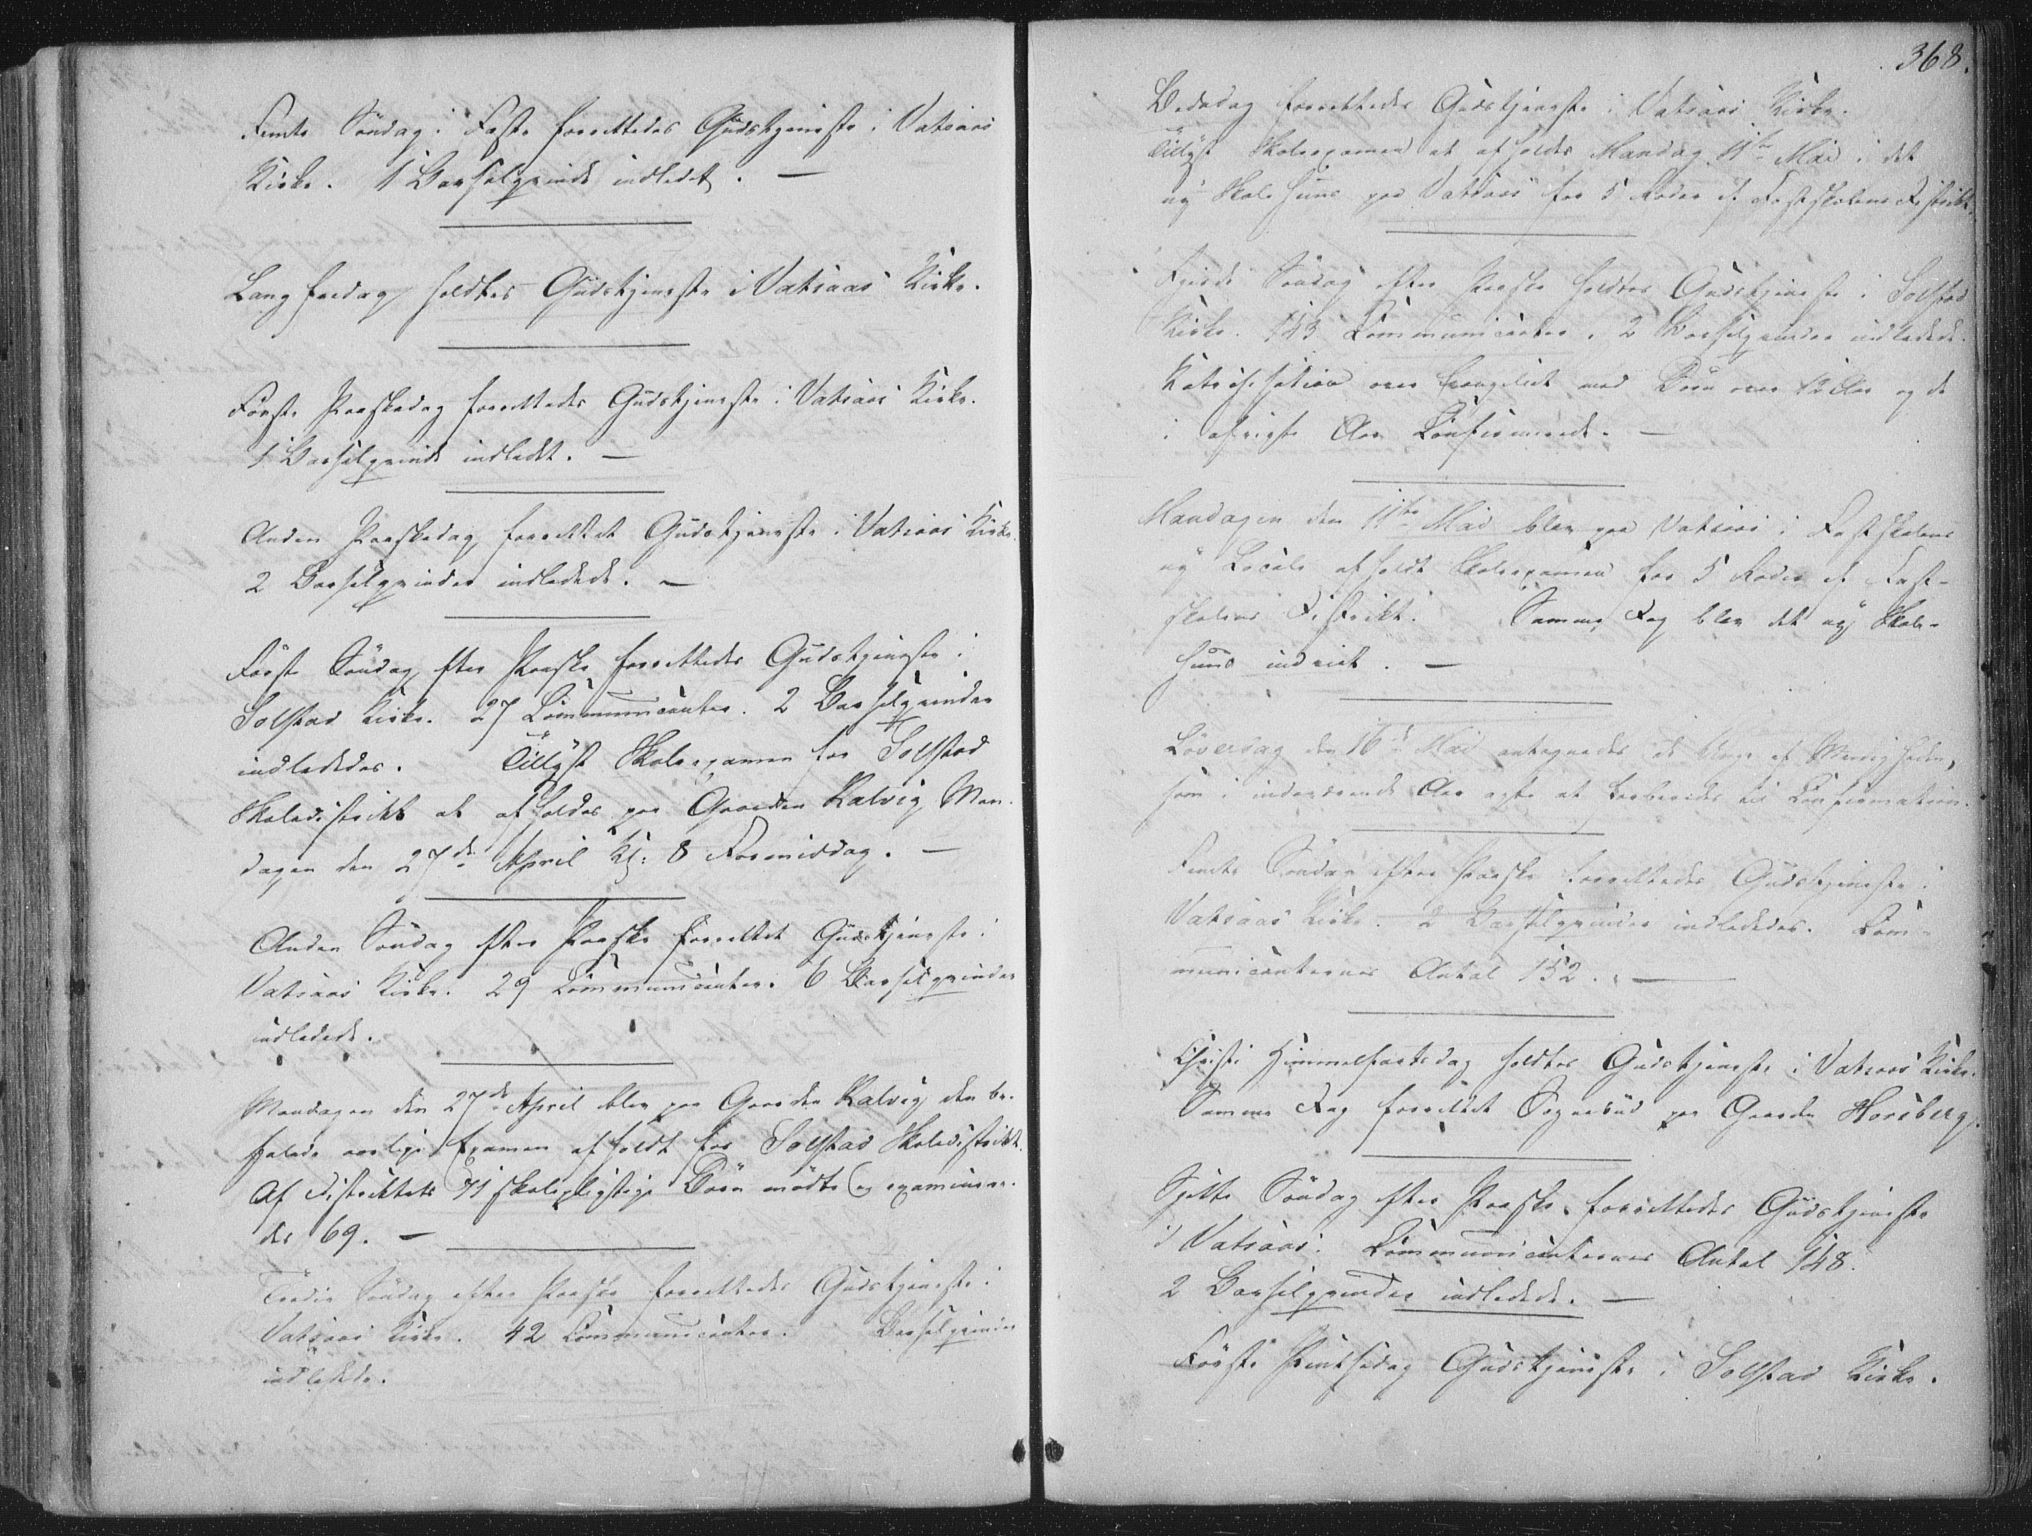 Femte Söndag i Faste forrettedes Gudstjeneste i Vatsaas
Kirke. 1 Barselqvinde indledet. —
Langfredag holdtes Gudstjeneste i Vatsaas Kirke.
Første Paaskedag forrettedes Gudstjeneste i Vatsaas Kirke.
1 Barselqvinde indledet. —
Anden Paaskedag forrettet Gudstjeneste i Vatsaas Kirke.
2 Barselqvinder indledede. —
Første Söndag efter Paaske forrettedes Gudstjeneste i
Solstad Kirke. 27 Communicanter. 2 Barselqvinder
indlededes. Tillyst Skoleexamen for Solstad
Skoledistrikt at afholdes paa Gaarden Kalvig Man-
dagen den 27de April Kl: 8 Formiddag. —
Anden Söndag efter Paaske forrettet Gudstjeneste i
Vatsaas Kirke. 29 Communicanter. 6 Barselqvinder
indledede.
Mandagen den 27de April blev paa Gaarden Kalvig den be-
falede aarlige Examen afholdt for Solstad Skoledistrikt.
Af Distriktets 71 skolepligtige Börn mødte og examinere-
des 69. —
Tredie Söndag efter Paaske forrettedes Gudstjeneste i
Vatsaas Kirke. 42 Communicanter. Barselqvinder
indledede.
368.
Bededag forrettedes Gudstjeneste i Vatsaas Kirke.
Tillyst Skoleexamen at afholdes Mandag 11te Mai i det
ny Skolehuus paa Vatsaas for 5 Roder af Fastskolens Distrikt.
Fjerde Söndag efter Paaske holdtes Gudstjeneste i Solstad
Kirke. 143 Communicanter. 2 Barselqvinder indledede.
Katechisation over Evangeliet med Børn over 12 Aar og de
i afvigte Aar Confirmerede. —
Mandagen den 11te Mai blev paa Vatsaas i Fastskolens
ny Locale afholdt Skoleexamen for 5 Roder af Fast-
skolens Distrikt. Samme Dag blev det ny Skole-
huus indviet. —
Löverdag den 16de Mai antegnedes de Unge af Menigheden,
som i indeværende Aar agte at forberedes til Confirmation.
Femte Söndag efter Paaske forrettedes Gudstjeneste i
Vatsaas Kirke. 2 Barselqvinder indlededes. Com-
municanternes Antal 152. —
Christi Himmelfartsdag holdtes Gudstjeneste i Vatsaas Kirke.
Samme Dag forrettet Sognebud paa Gaarden Horsberg.
Sjette Söndag efter Paaske forrettedes Gudstjeneste
i Vatsaas. Communicanternes Antal 148.
2 Barselqvinder indledede. —
Første Pintsedag Gudstjeneste i Solstad Kirke.